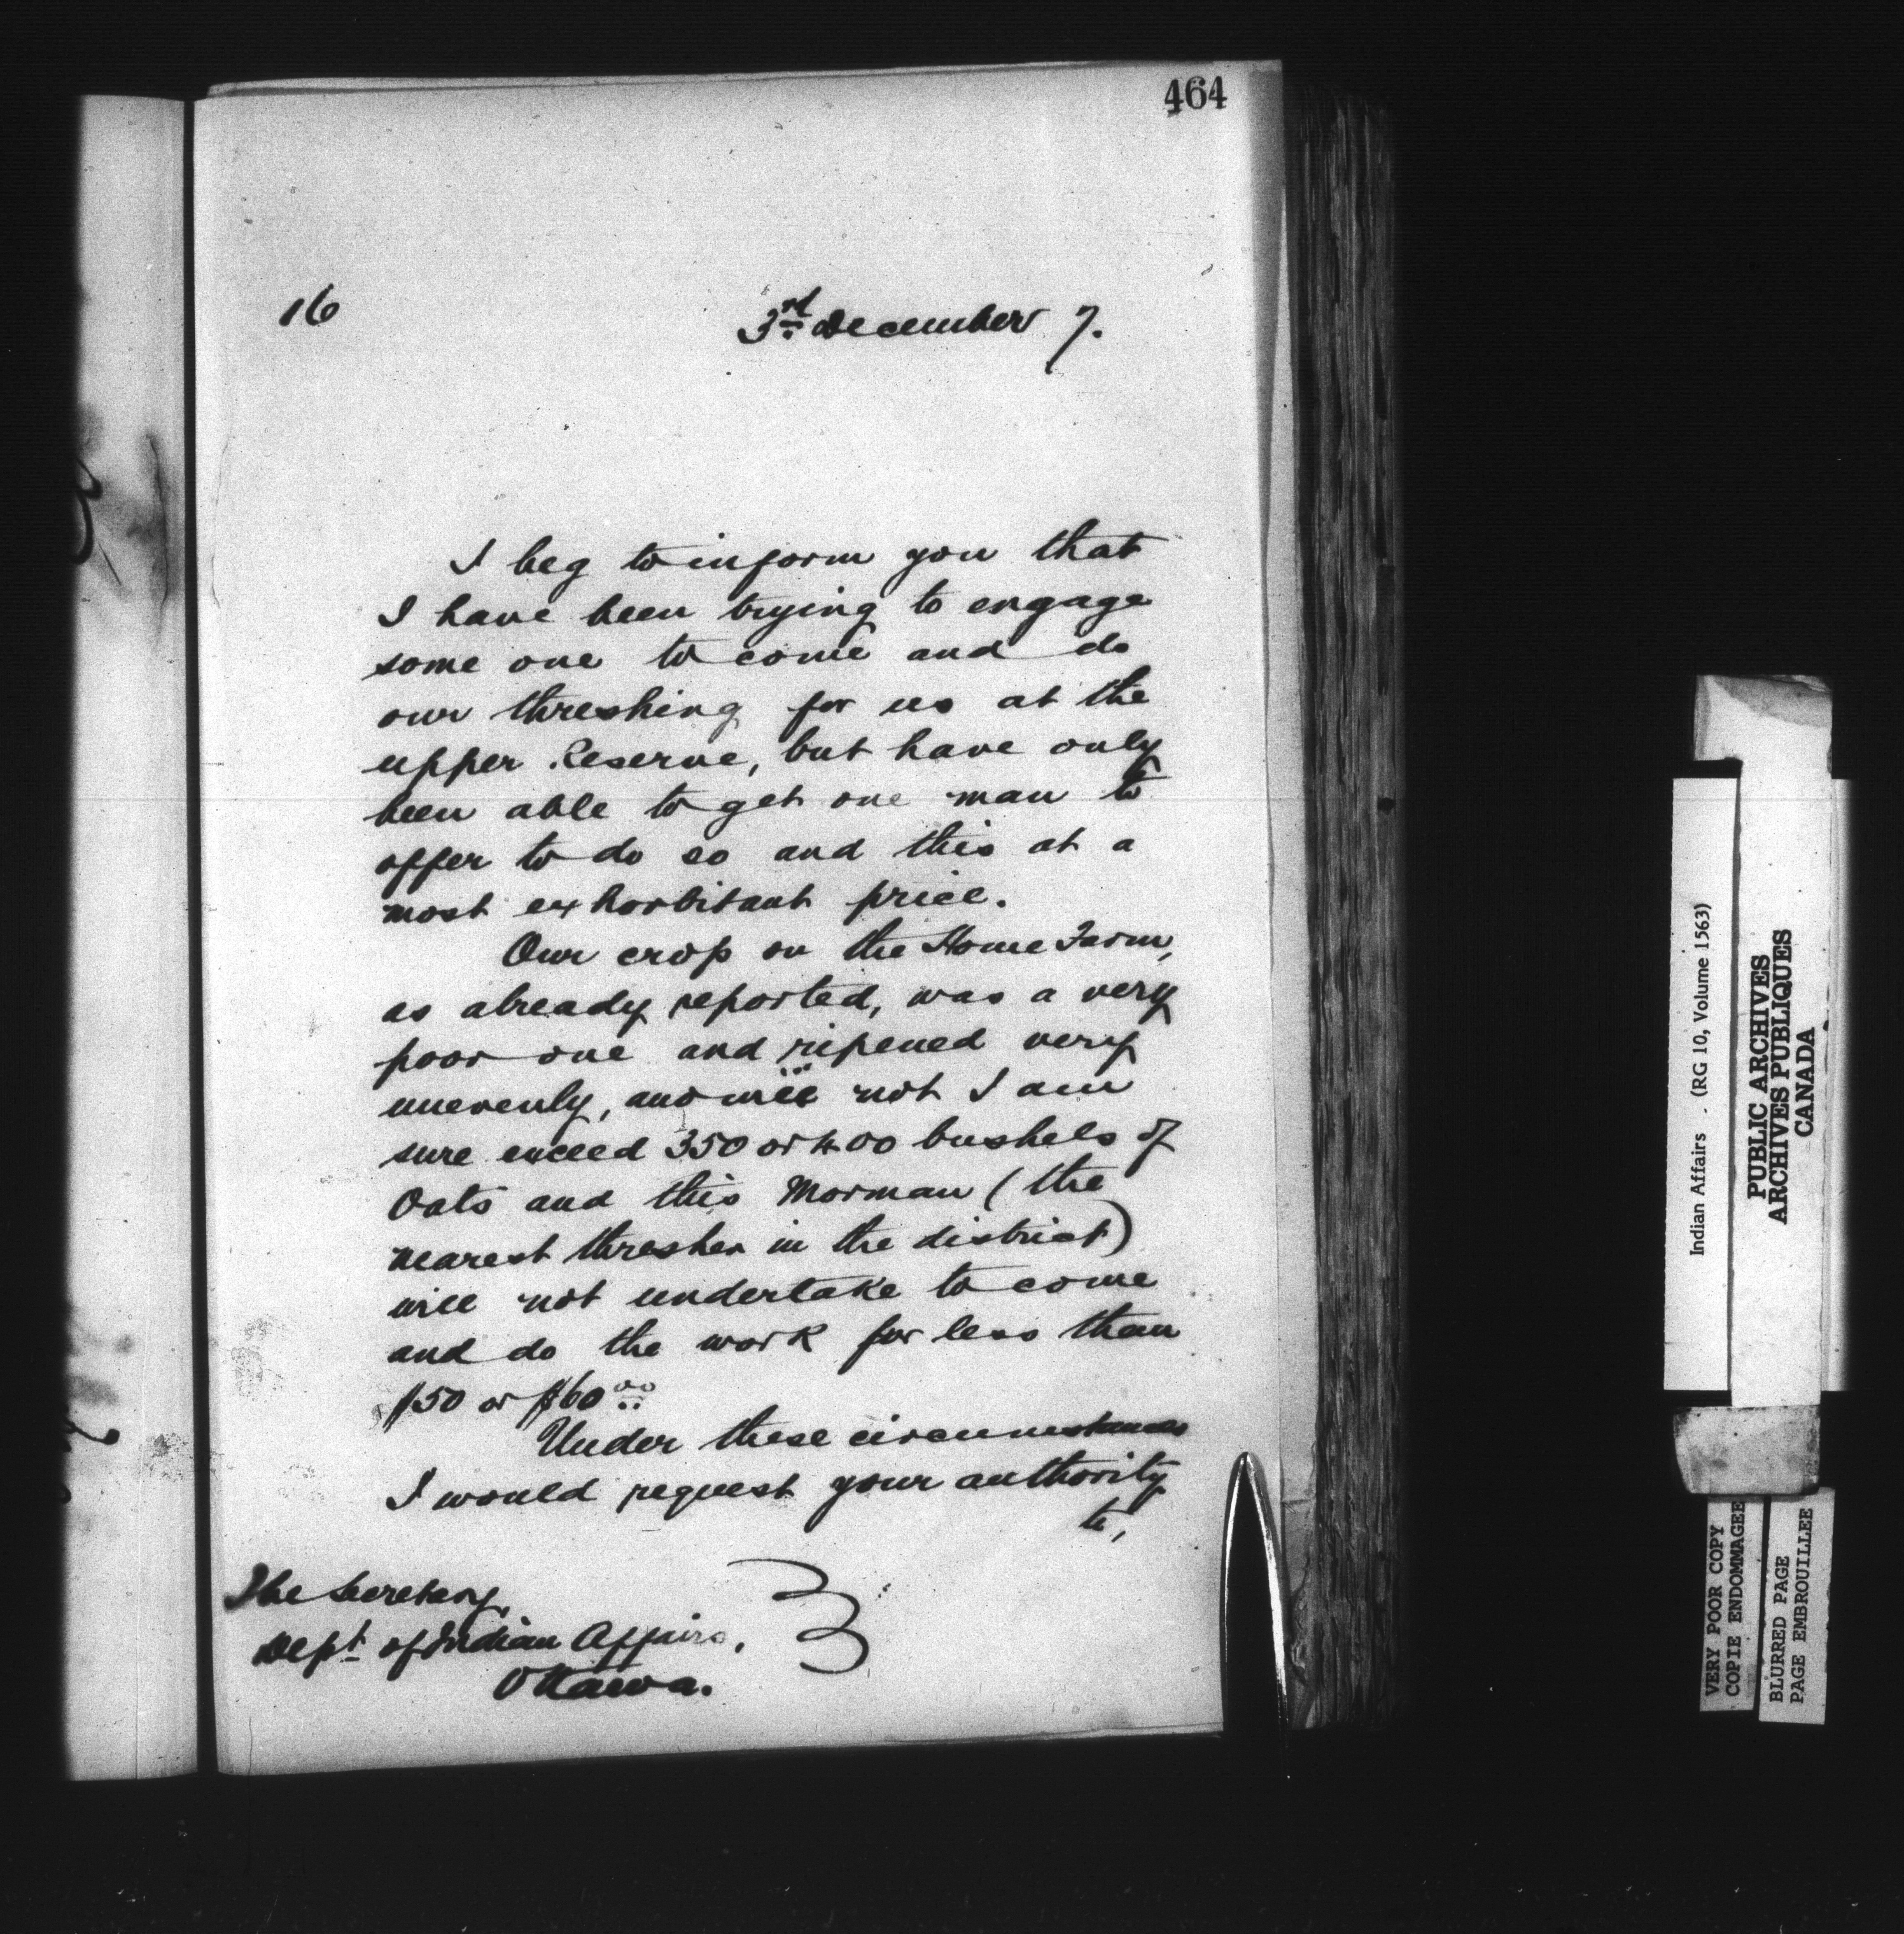 464
16
3rd December 7.
I beg to inform you that
I have been trying to engage
some one to come and do
our threshing for us at the
upper Reserve, but have only
been able to get one man to
offer to do so and this at a
most exhorbitant price.
Our crop on the Home Farm,
as already reported, was a very
poor one and ripened very
unevenly, and will not I am
sure exceed 350 or 400 bushels of
Oats and this Morman (the
nearest thresher in the district)
will not undertake to come
and do the work for less than
$50 or $60.00
Under these circumstances
I would request your authority
to,
The Secretary,
Dept. of Indian Affairs,
Ottawa.
Indian Affairs . (RG 10, Volume 1563)
PUBLIC ARCHIVES
ARCHIVES PUBLIQUES
CANADA
VERY POOR COPY
COPIE ENDOMMAGEE
BLURRED PAGE
PAGE EMBROUILLEE